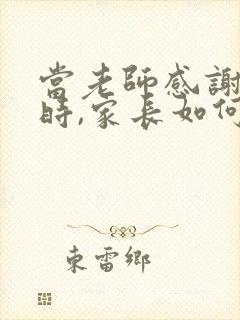 當老師感謝
時,家長如何
東雷鄉